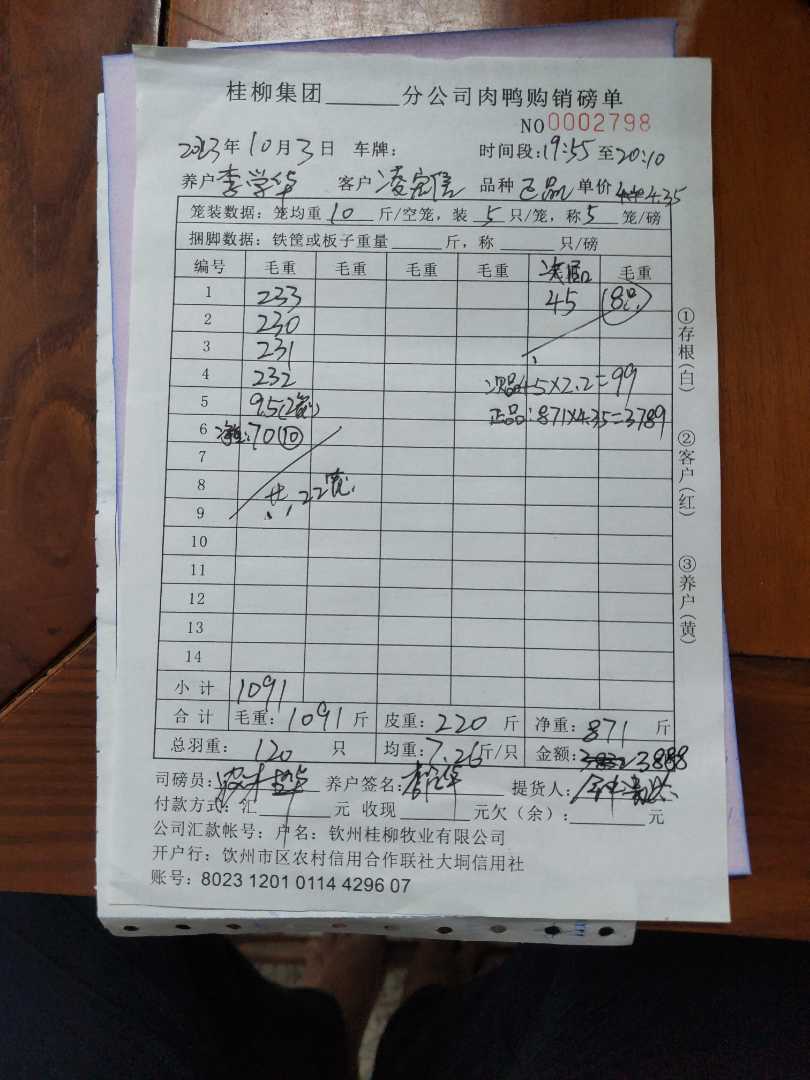 桂柳集团______分公司肉鸭购销磅单
NO0002798
2023年10月3日 车牌： 时间段：19:55至20:10
养户李学华 客户凌宏信 品种正品 单价4.35
笼装数据：笼均重10斤/空笼，装5只/笼，称5笼/磅
捆脚数据：铁筐或板子重量______斤，称______只/磅
编号 毛重 毛重 毛重 毛重 次品 毛重
1 233 45 (8只)
2 230
3 231
4 232 次品45×2.2=99
5 95(2笼) 正品：871×4.35=3789
6 净重：70⑩
7
8 共22笼
9
10
11
12
13
14
小计 1091
合计 毛重：1091斤 皮重：220斤 净重：871斤
总羽重：120只 均重：7.26斤/只 金额：3888
司磅员： 养户签名： 提货人：
付款方式：汇______元 收现______元欠（余）：______元
公司汇款帐号：户名：钦州桂柳牧业有限公司
开户行：饮州市区农村信用合作联社大垌信用社
账号：8023 1201 0114 4296 07
①存根(白)
②客户(红)
③养户(黄)